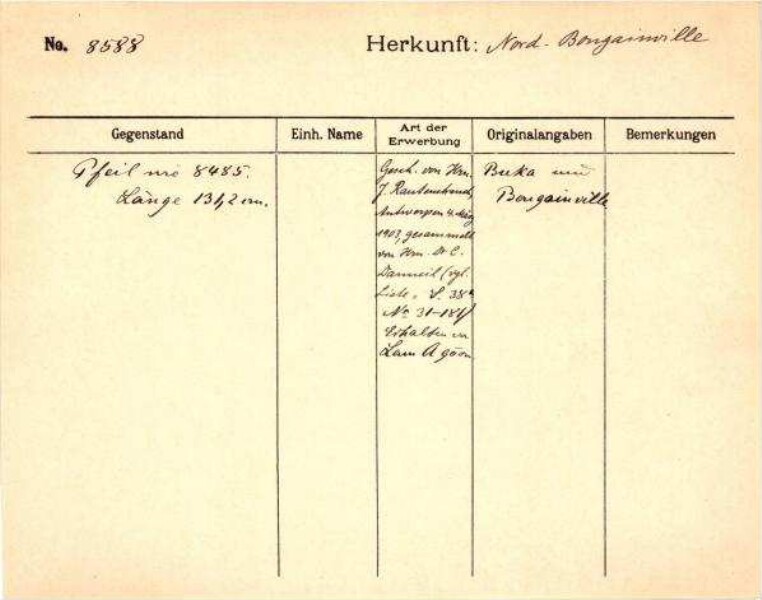 No. 8588
Herkunft: Nord-Bougainville
Gegenstand
Einh. Name
Art der Erwerbung
Originalangaben
Bemerkungen
Pfeil wie 8485.
Länge 131,2 cm.
Gesch. von Hrn.
J. Rautenstrauch,
Antwerpen 4. März
1903, gesammelt
von Hrn. Dr C.
Danneil (vgl.
Liste, S. 38
No 31-181)
Erhalten in
Lam
Buka und
Bougainville